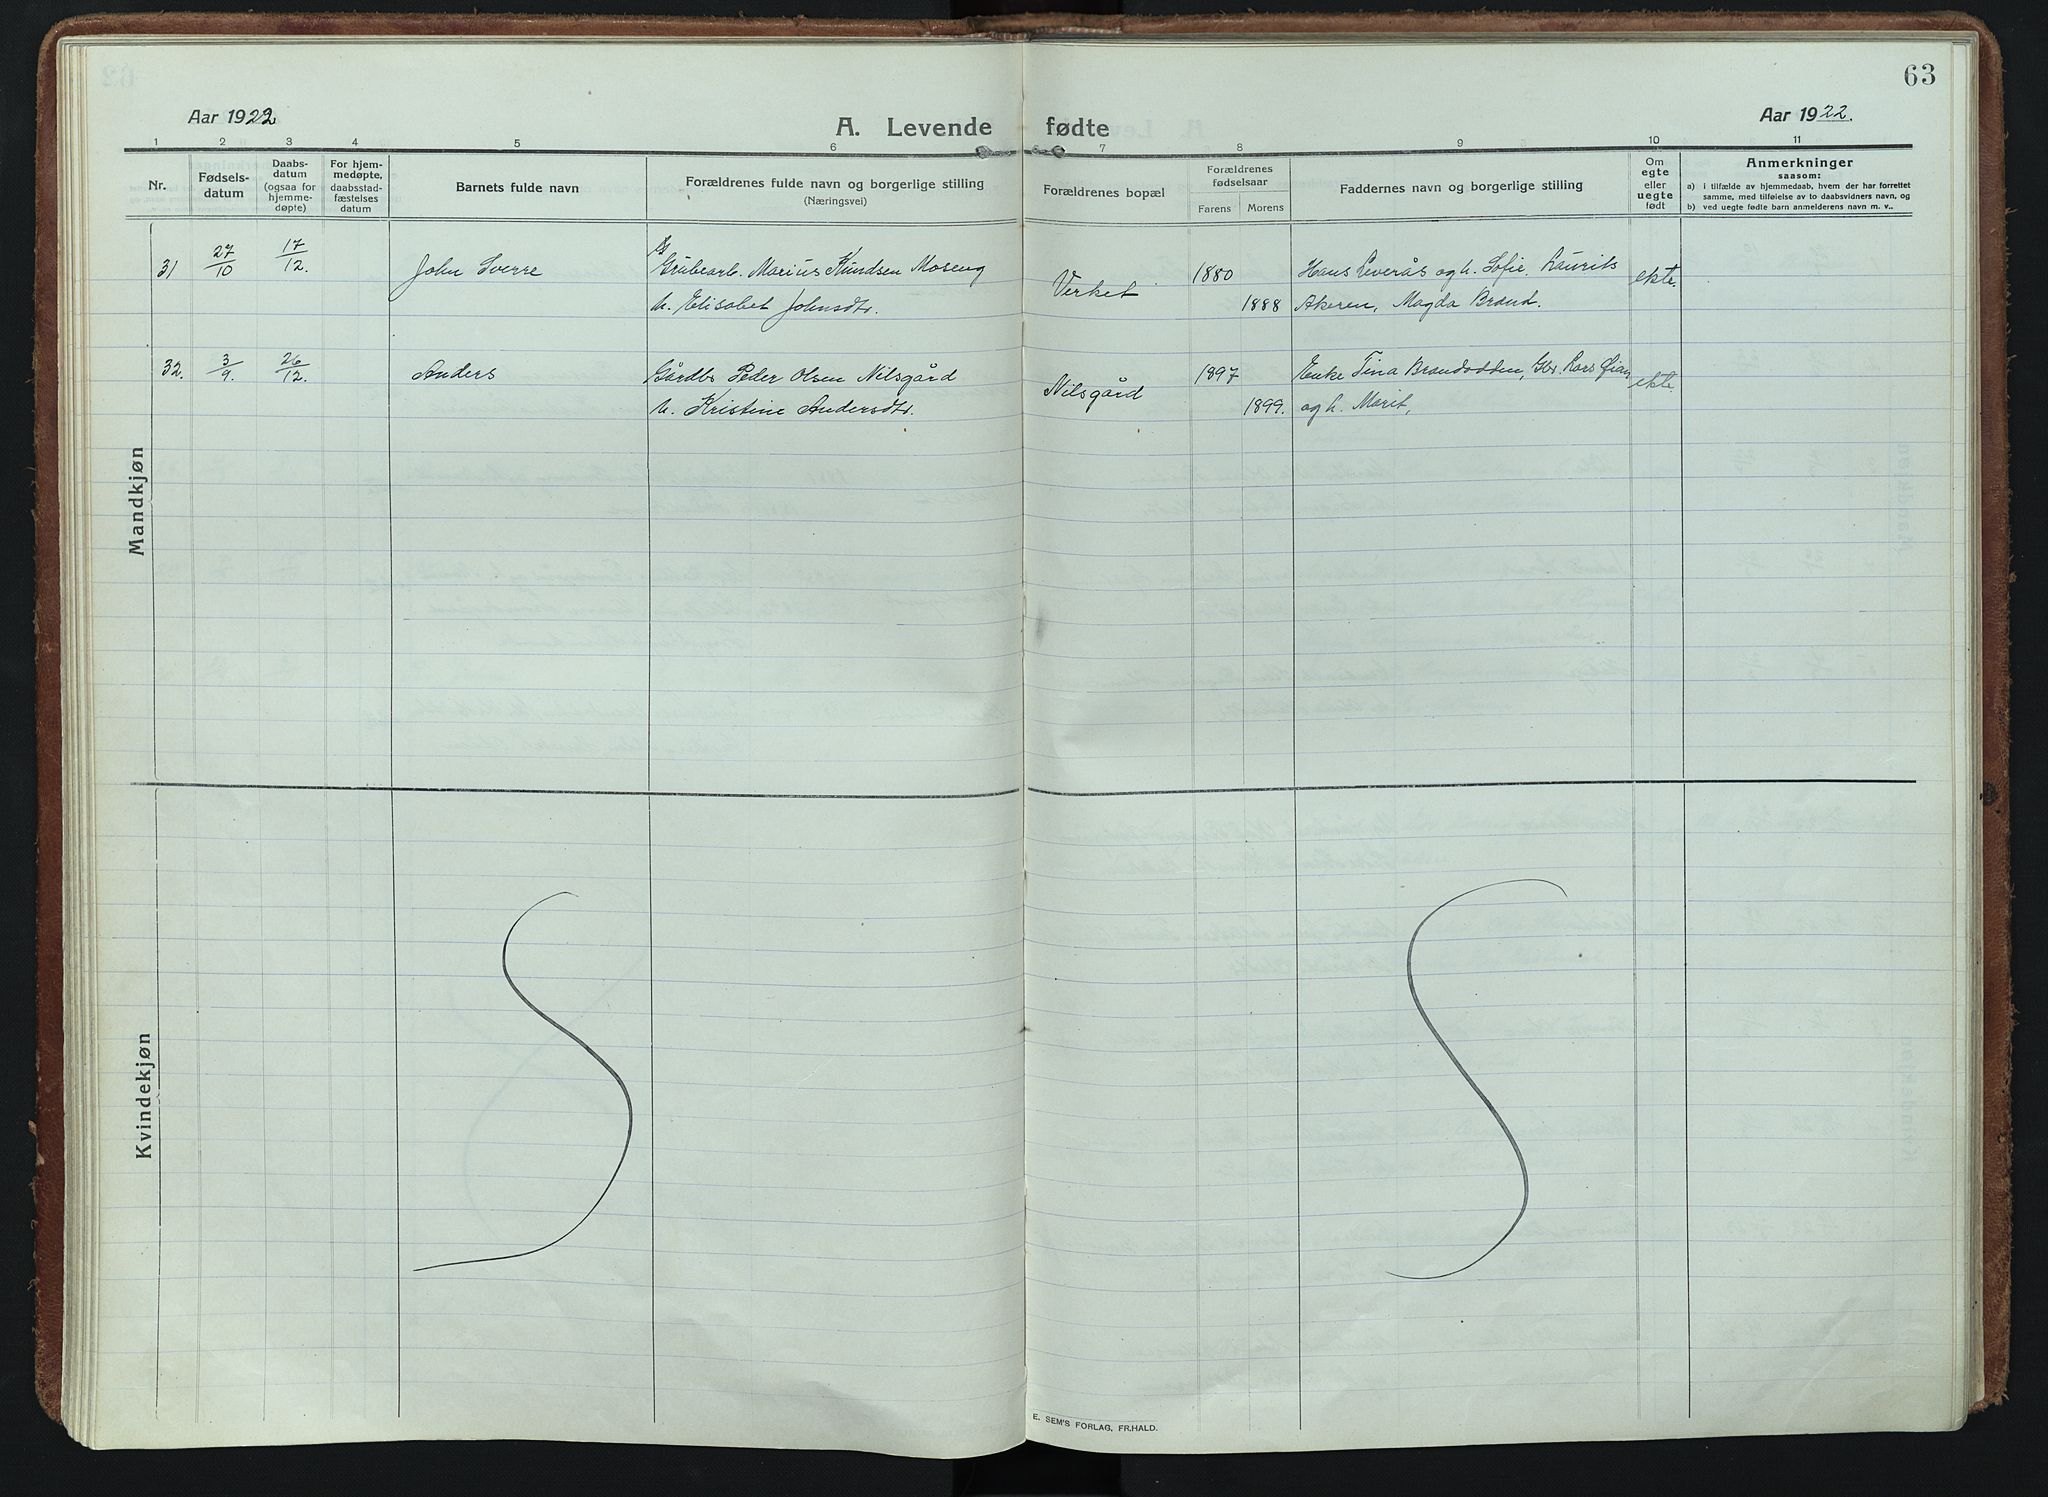 63
Aar 1922
Aar 1922.
A. Levende fødte
1 2 3 4 5 6 6 7 8 9 10 11
Nr.
Fødsels-
datum
Daabs-
datum
(ogsaa for
hjemme-
døpte)
For hjem-
medøpte,
daabsstad-
fæstelses
datum
Barnets fulde navn
Forældrenes fulde navn og borgerlige stilling
(Næringsvei)
Forældrenes bopæl
Forældrenes
fødselsaar
Farens Morens
Faddernes navn og borgerlige stilling
Om
egte
eller
uegte
født
Anmerkninger
saasom:
a) i tilfælde av hjemmedaab, hvem der har forrettet
samme, med tilføielse av to daabsvidners navn, og
b) ved uegte fødte barn anmelderens navn m. v..
Mandkjøn
31 27/10 17/12. John Sverre Grubearb. Marius Knudsen Moseng Verket 1880 Hans Leverås og h. Sofie, Laurits ekte.
h. Elisabet Johnsdtr. 1888 Akeren, Magda Brand.
32. 3/9. 26/12. Anders Gårdbr Peder Olsen Nilsgård Nilsgård 1897 Enke Tina Brandodden, Gbr. Lars Øian ekte
h. Kristine Andersdtr. 1899. og h. Marit,
Kvindekjøn
E. SEM'S FORLAG, FR.HALD.